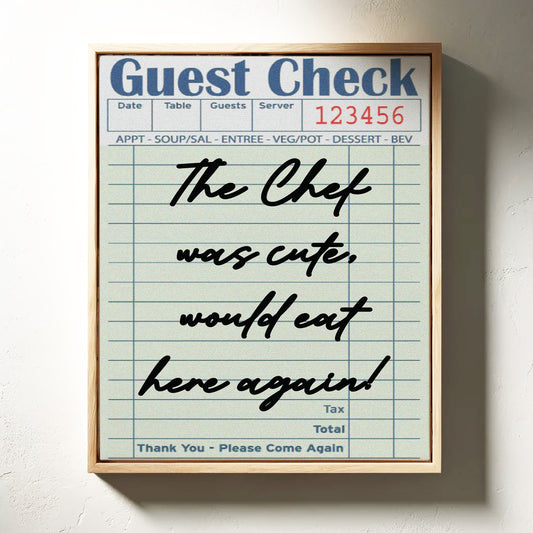 Guest Check
Date Table Guests Server 123456
APPT - SOUP/SAL - ENTREE - VEG/POT - DESSERT - BEV
The Chef
was cute,
would eat
here again!
Tax
Total
Thank You - Please Come Again